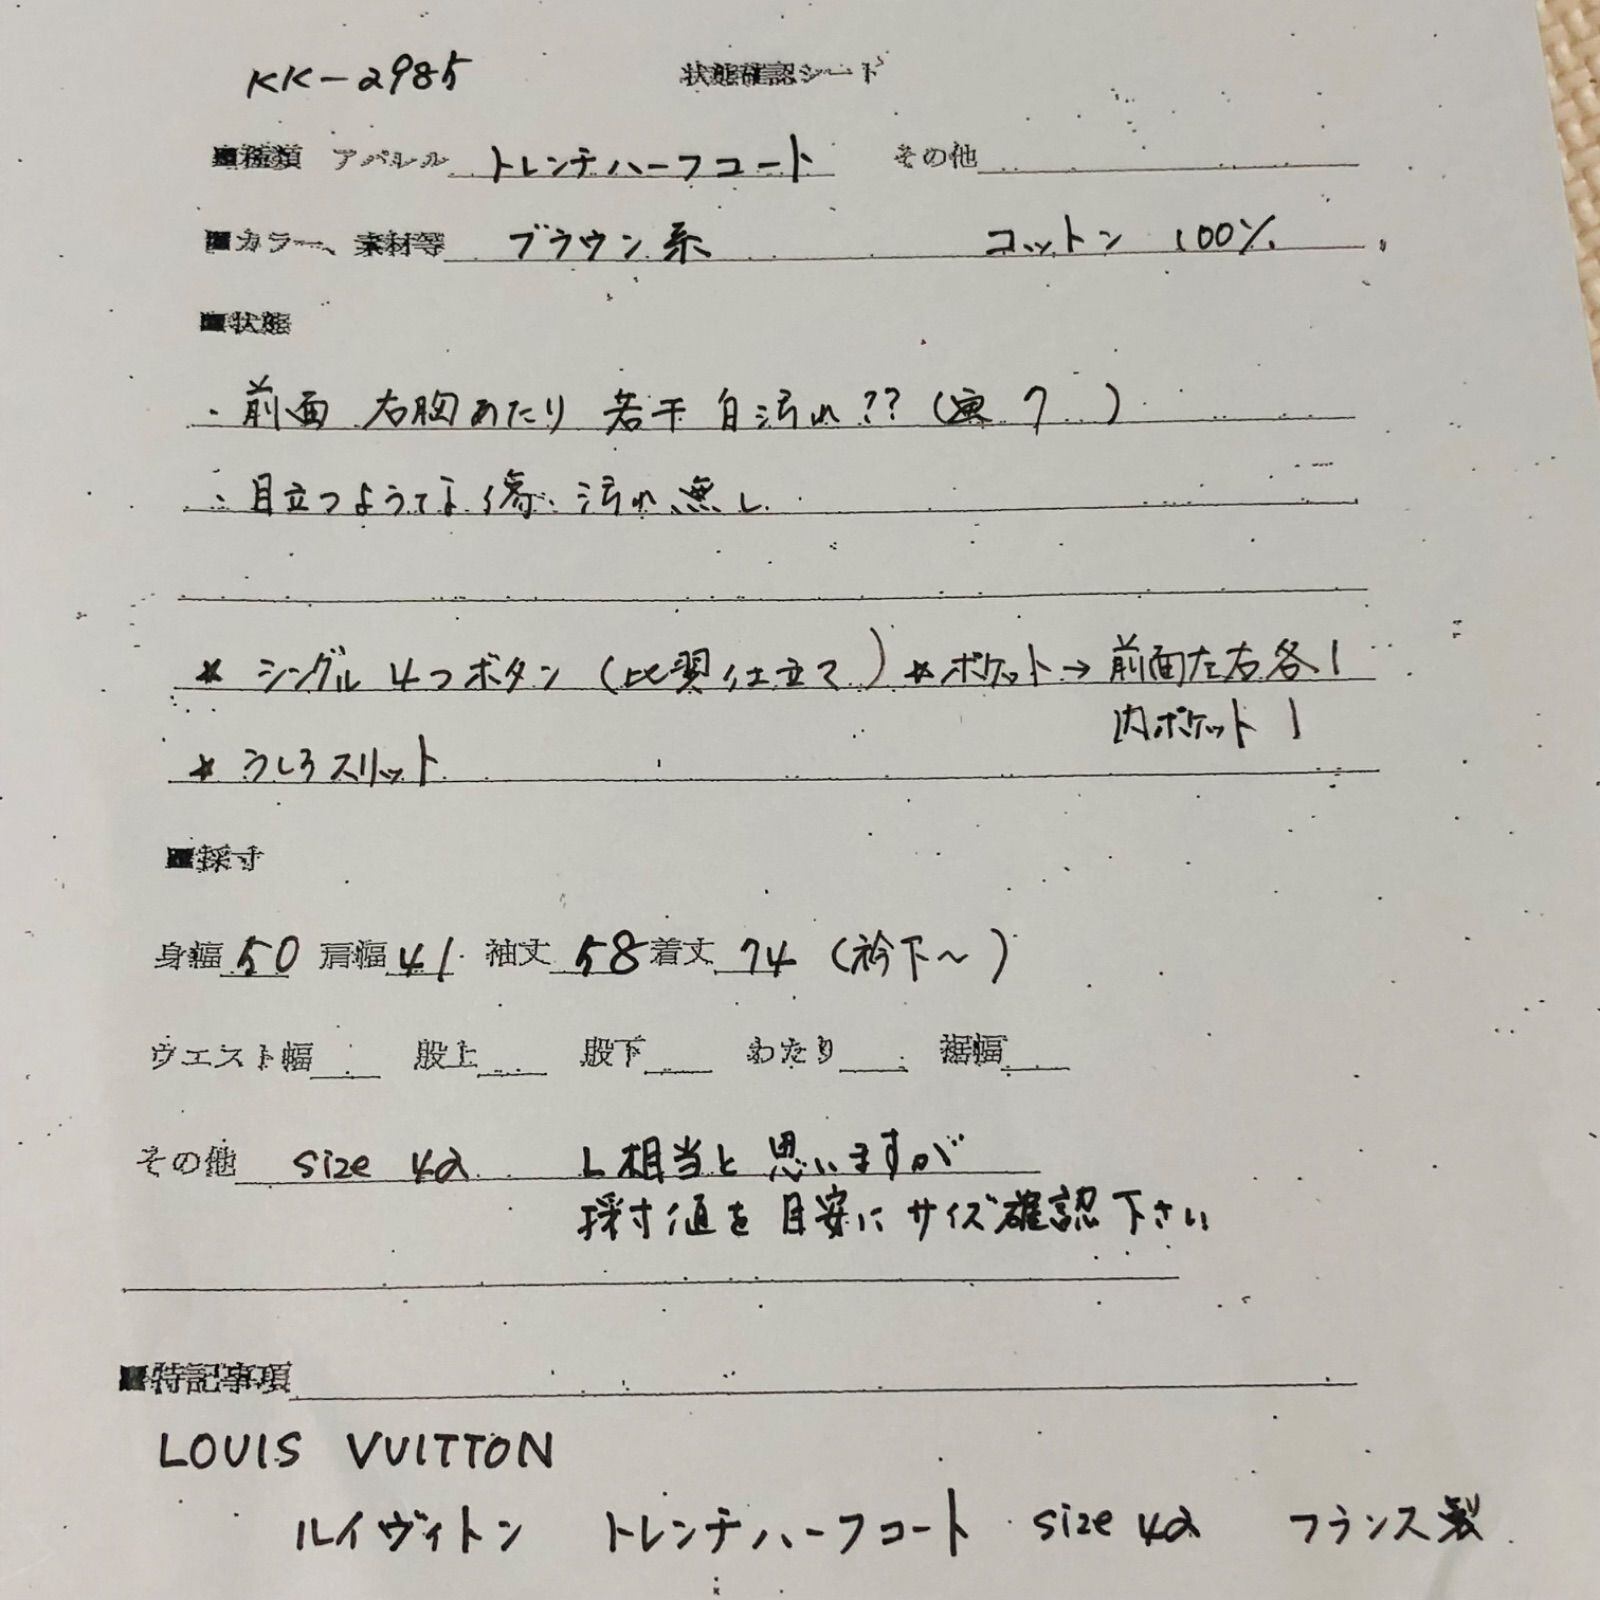 KK-2985 状態確認シート
■種類 アパレル トレンチハーフコート その他
■カラー、素材等 ブラウン系 コットン 100%
■状態
・前面 右胸あたり 若干 白汚れ?? (写7 )
・目立つような傷・汚れ無し
* シングル 4つボタン (比翼仕立て) * ポケット→ 前面左右各1
内ポケット 1
* うしろスリット
■採寸
身幅 50 肩幅 41 袖丈 58 着丈 74 (衿下〜)
ウエスト幅 股上 股下 わたり 裾幅
その他 size 42 L相当と思いますが
採寸値を目安にサイズ確認下さい
■特記事項
LOUIS VUITTON
ルイヴィトン トレンチハーフコート size 42 フランス製